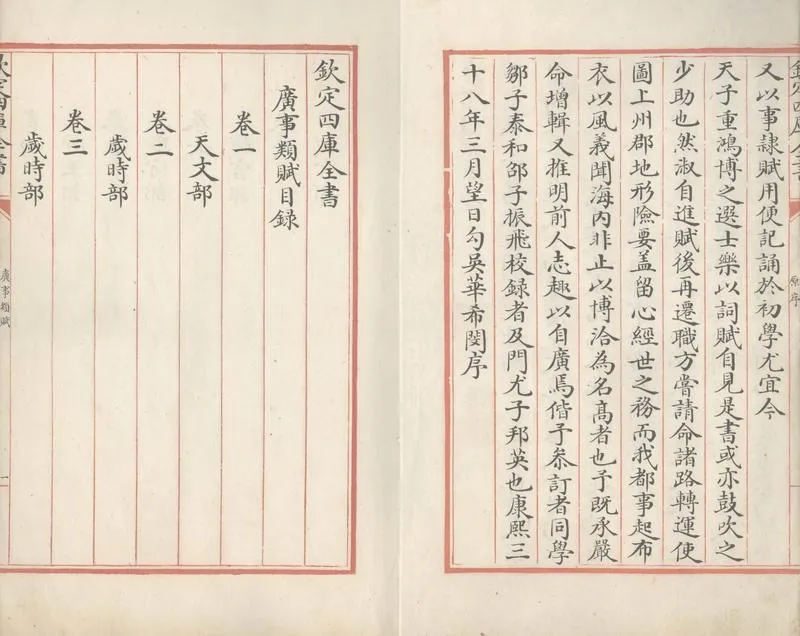 欽定四庫全書
原序
又以事隸賦用便記誦於初學尤宜今
天子重鴻博之選士樂以詞賦自見是書或亦鼓吹之
少助也然淑自進賦後再遷職方嘗請命諸路轉運使
圖上州郡地形險要蓋留心經世之務而我都事起布
衣以風義聞海内非止以博洽為名髙者也予既承嚴
命增輯又推明前人志趣以自廣焉偕予叅訂者同學
鄒子泰和邵子振飛校録者及門尤子邦英也康熙三
十八年三月望日勾吳華希閔序
欽定四庫全書
廣事類賦目録
卷一
天文部
卷二
歲時部
卷三
歲時部
欽定四庫全書
廣事類賦
一